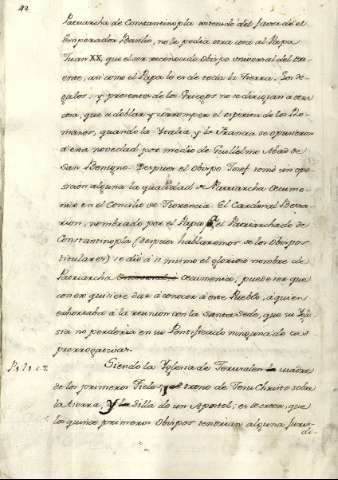 Patriarcha de Constantinopla sostenido del favor de el
Emperador Basilio, no le pedia otra cosa al Papa
Juan XX, que el ser reconocido Obispo universal del Ori-
ente, asi como el Papa lo es de toda la tierra. Los Re-
galos, y presentes de los Griegos no se dirigian a otra co-
sa, que a doblar y corromper el espiritu de los Ro-
manos, quando la Italia, y la Francia se opusieron
a esta novedad por medio de Guillelmo Abad de
San Benigno. Despues el Obispo Josef tomó sin opo-
sicion alguna la qualidad de Patriarcha Ecume-
nico en el Concilio de Florencia. El Cardenal Besa-
rion, nombrado por el Papa el Patriarchado de
Constantinopla (despues hablaremos de los Obispos
titulares) se dió a si mismo el glorioso nombre de
Patriarcha ecumenico; puede ser que
con esto quisiere dar á conocer á este Pueblo, a quien
exhortaba a la reunion con la Santa Sede, que su Igle-
sia no perderia en su Pontificado ninguna de sus
prerrogativas.
Siendo la Iglesia de Jerusalen la madre
de los primeros Fieles, el trono de Jesu Christo sobre
la tierra, y la Silla de un Apostol; es de creer, que
los quince primeros Obispos tendrian alguna Juris-
di-